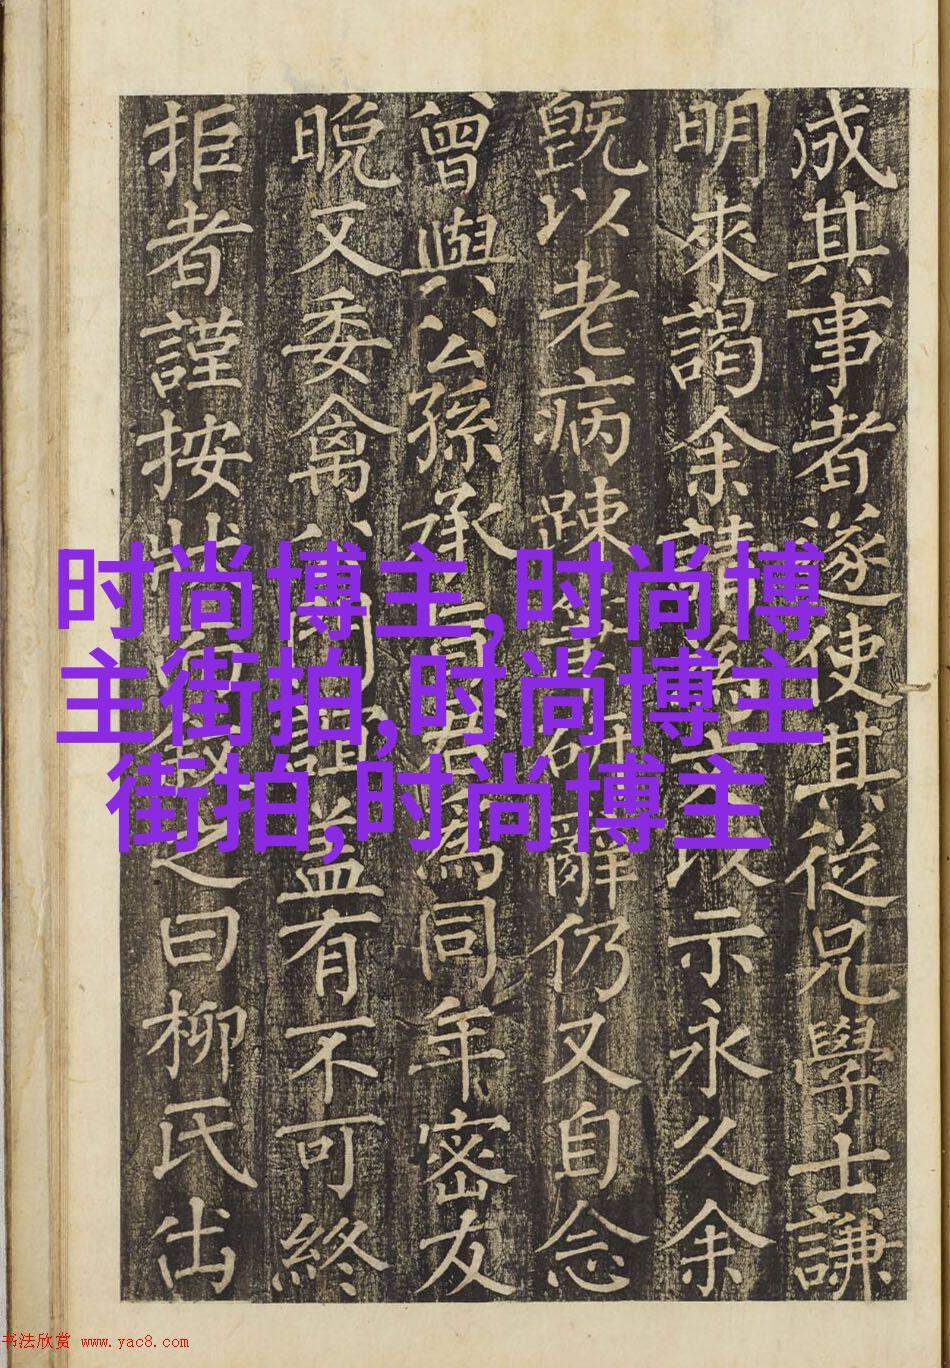 成其事者遂使其從兄學士謙
明來謁余請以示永久余
既以老病疎研辭仍又自念
曾與公孫承為同年密友
晚又委禽門誼益有不可終
拒者謹按狀而敘之曰柳氏出
时尚博主,时尚博
主街拍,时尚博主
街拍,时尚博主
书法欣赏 www.yac8.com